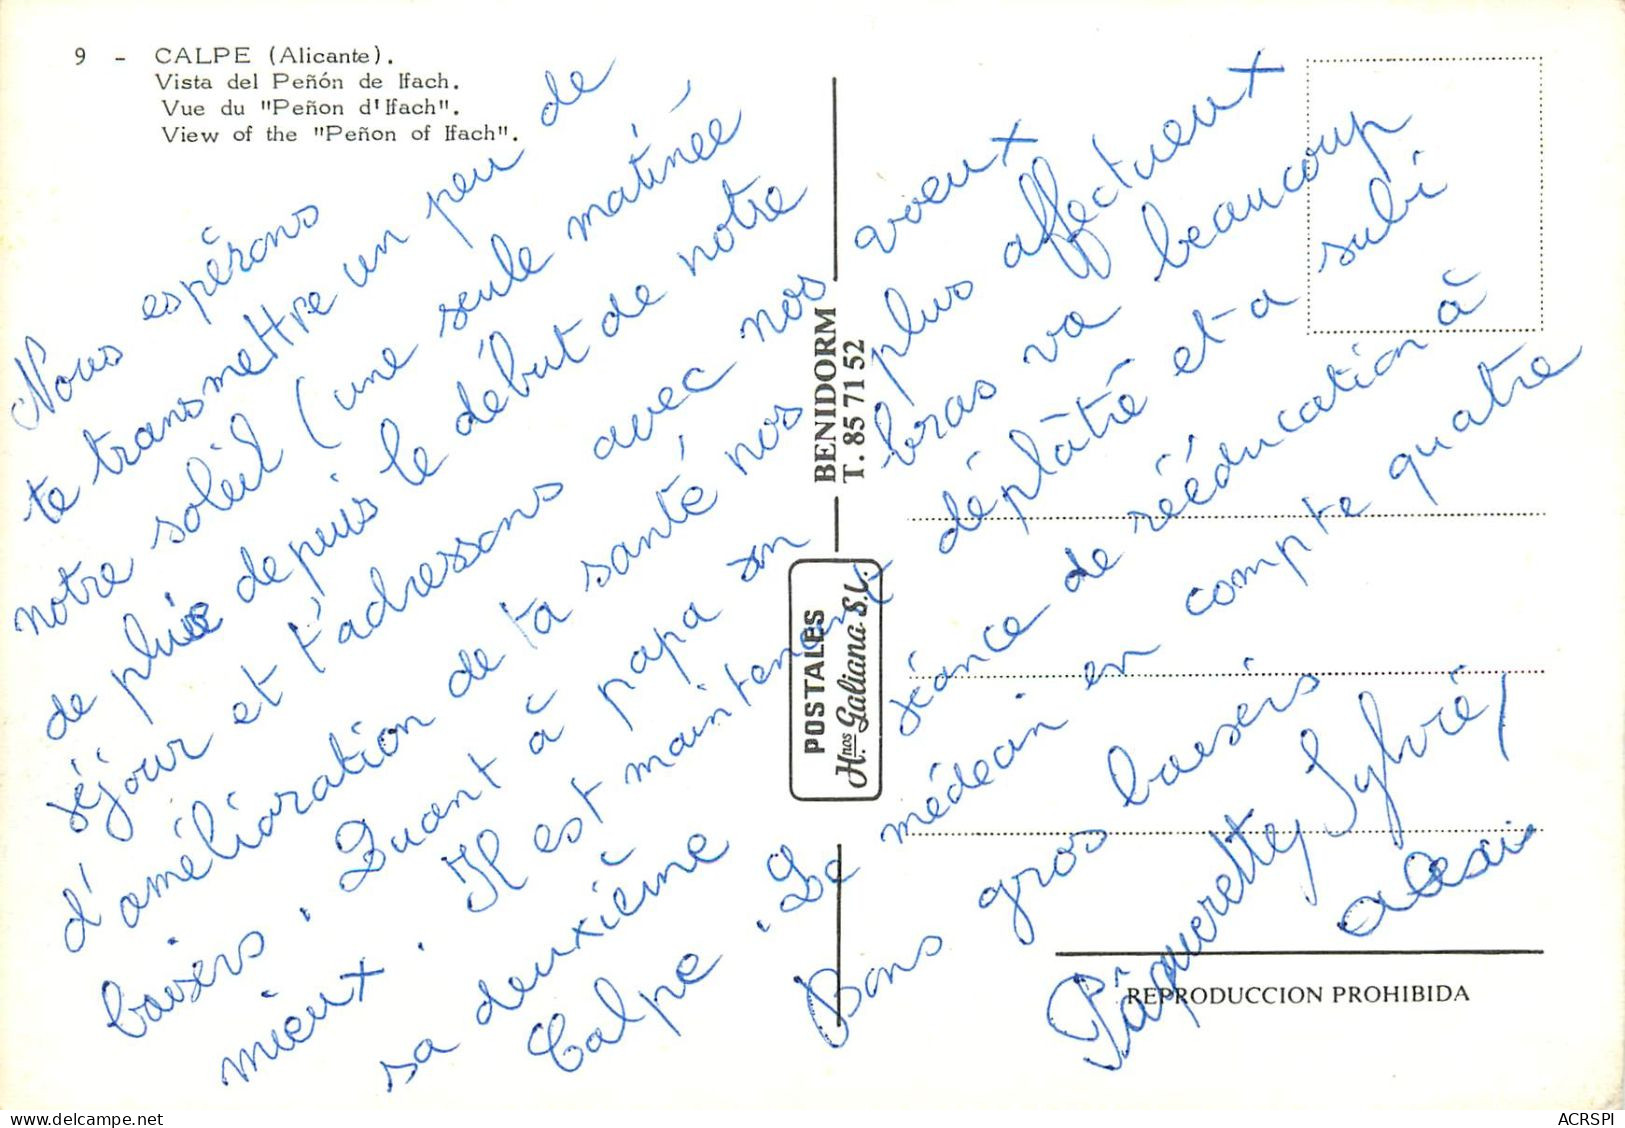 9 - CALPE (Alicante).
Vista del Peñón de Ifach.
Vue du "Peñon d'Ifach".
View of the "Peñon of Ifach".
Nous espérons
te transmettre un peu de
notre soleil (une seule matinée
de pluie depuis le début de notre
séjour et t'adressons avec nos voeux
d'amélioration de ta santé nos plus affectueux
baisers. Quant à papa son bras va beaucoup
mieux. Il est maintenant déplâtré et a subi
sa deuxième séance de rééducation à
Calpe. Le médecin en compte quatre
Bons gros baisers
Pâquerette, Sylvie,
alexis
BENIDORM
T. 85 71 52
POSTALES
H.nos Galiana S.L.
REPRODUCCION PROHIBIDA
ACRSPI